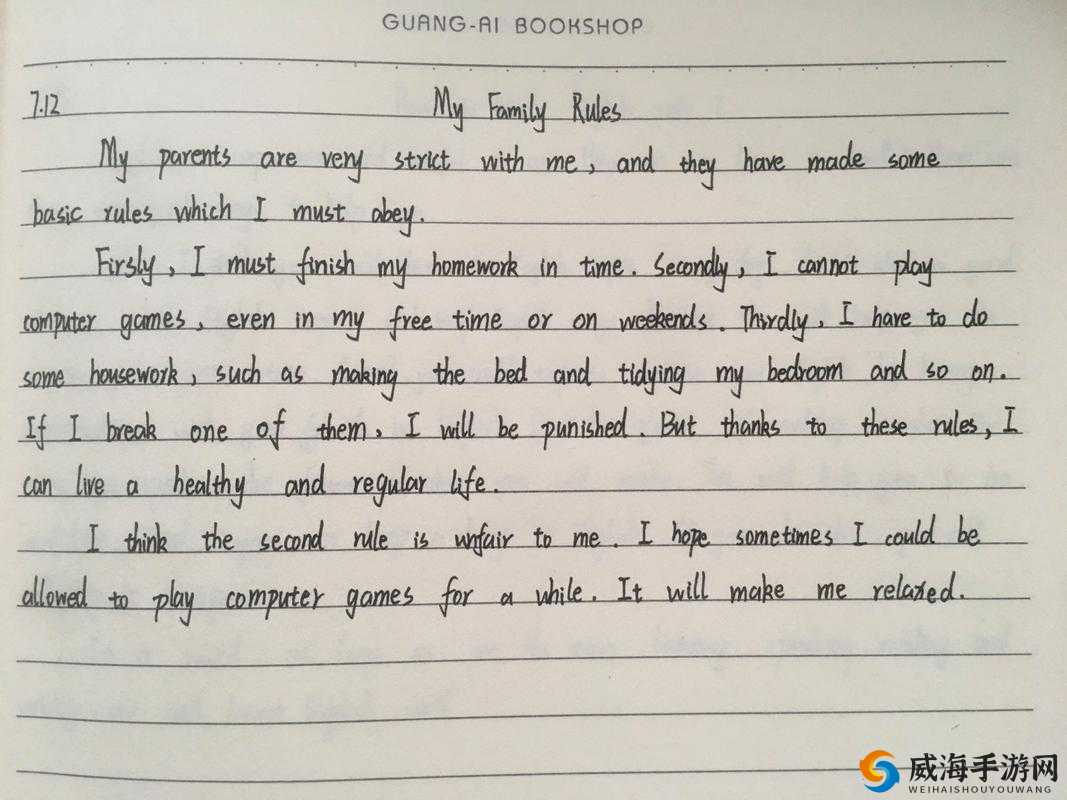 GUANG-AI BOOKSHOP
7.12 My Family Rules
My parents are very strict with me, and they have made some
basic rules which I must abey.
Firsly, I must finish my homework in time. Secondly, I cannot play
computer games, even in my free time or on weekends. Thirdly, I have to do
some housework, such as making the bed and tidying my bedroom and so on.
If I break one of them, I will be punished. But thanks to these rules, I
can live a healthy and regular life.
I think the second rule is unfair to me. I hope sometimes I could be
allowed to play computer games for a while. It will make me relaxed.
威海手游网
WEIHAISHOUYOUWANG